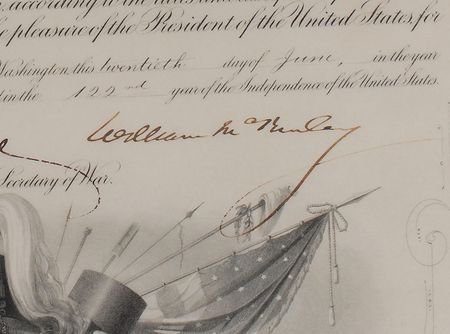 according to the
pleasure of the President of the United States, for
Washington this twentieth day of June, in the year
in the 122nd year of the Independence of the United States.
William McKinley
Secretary of War.